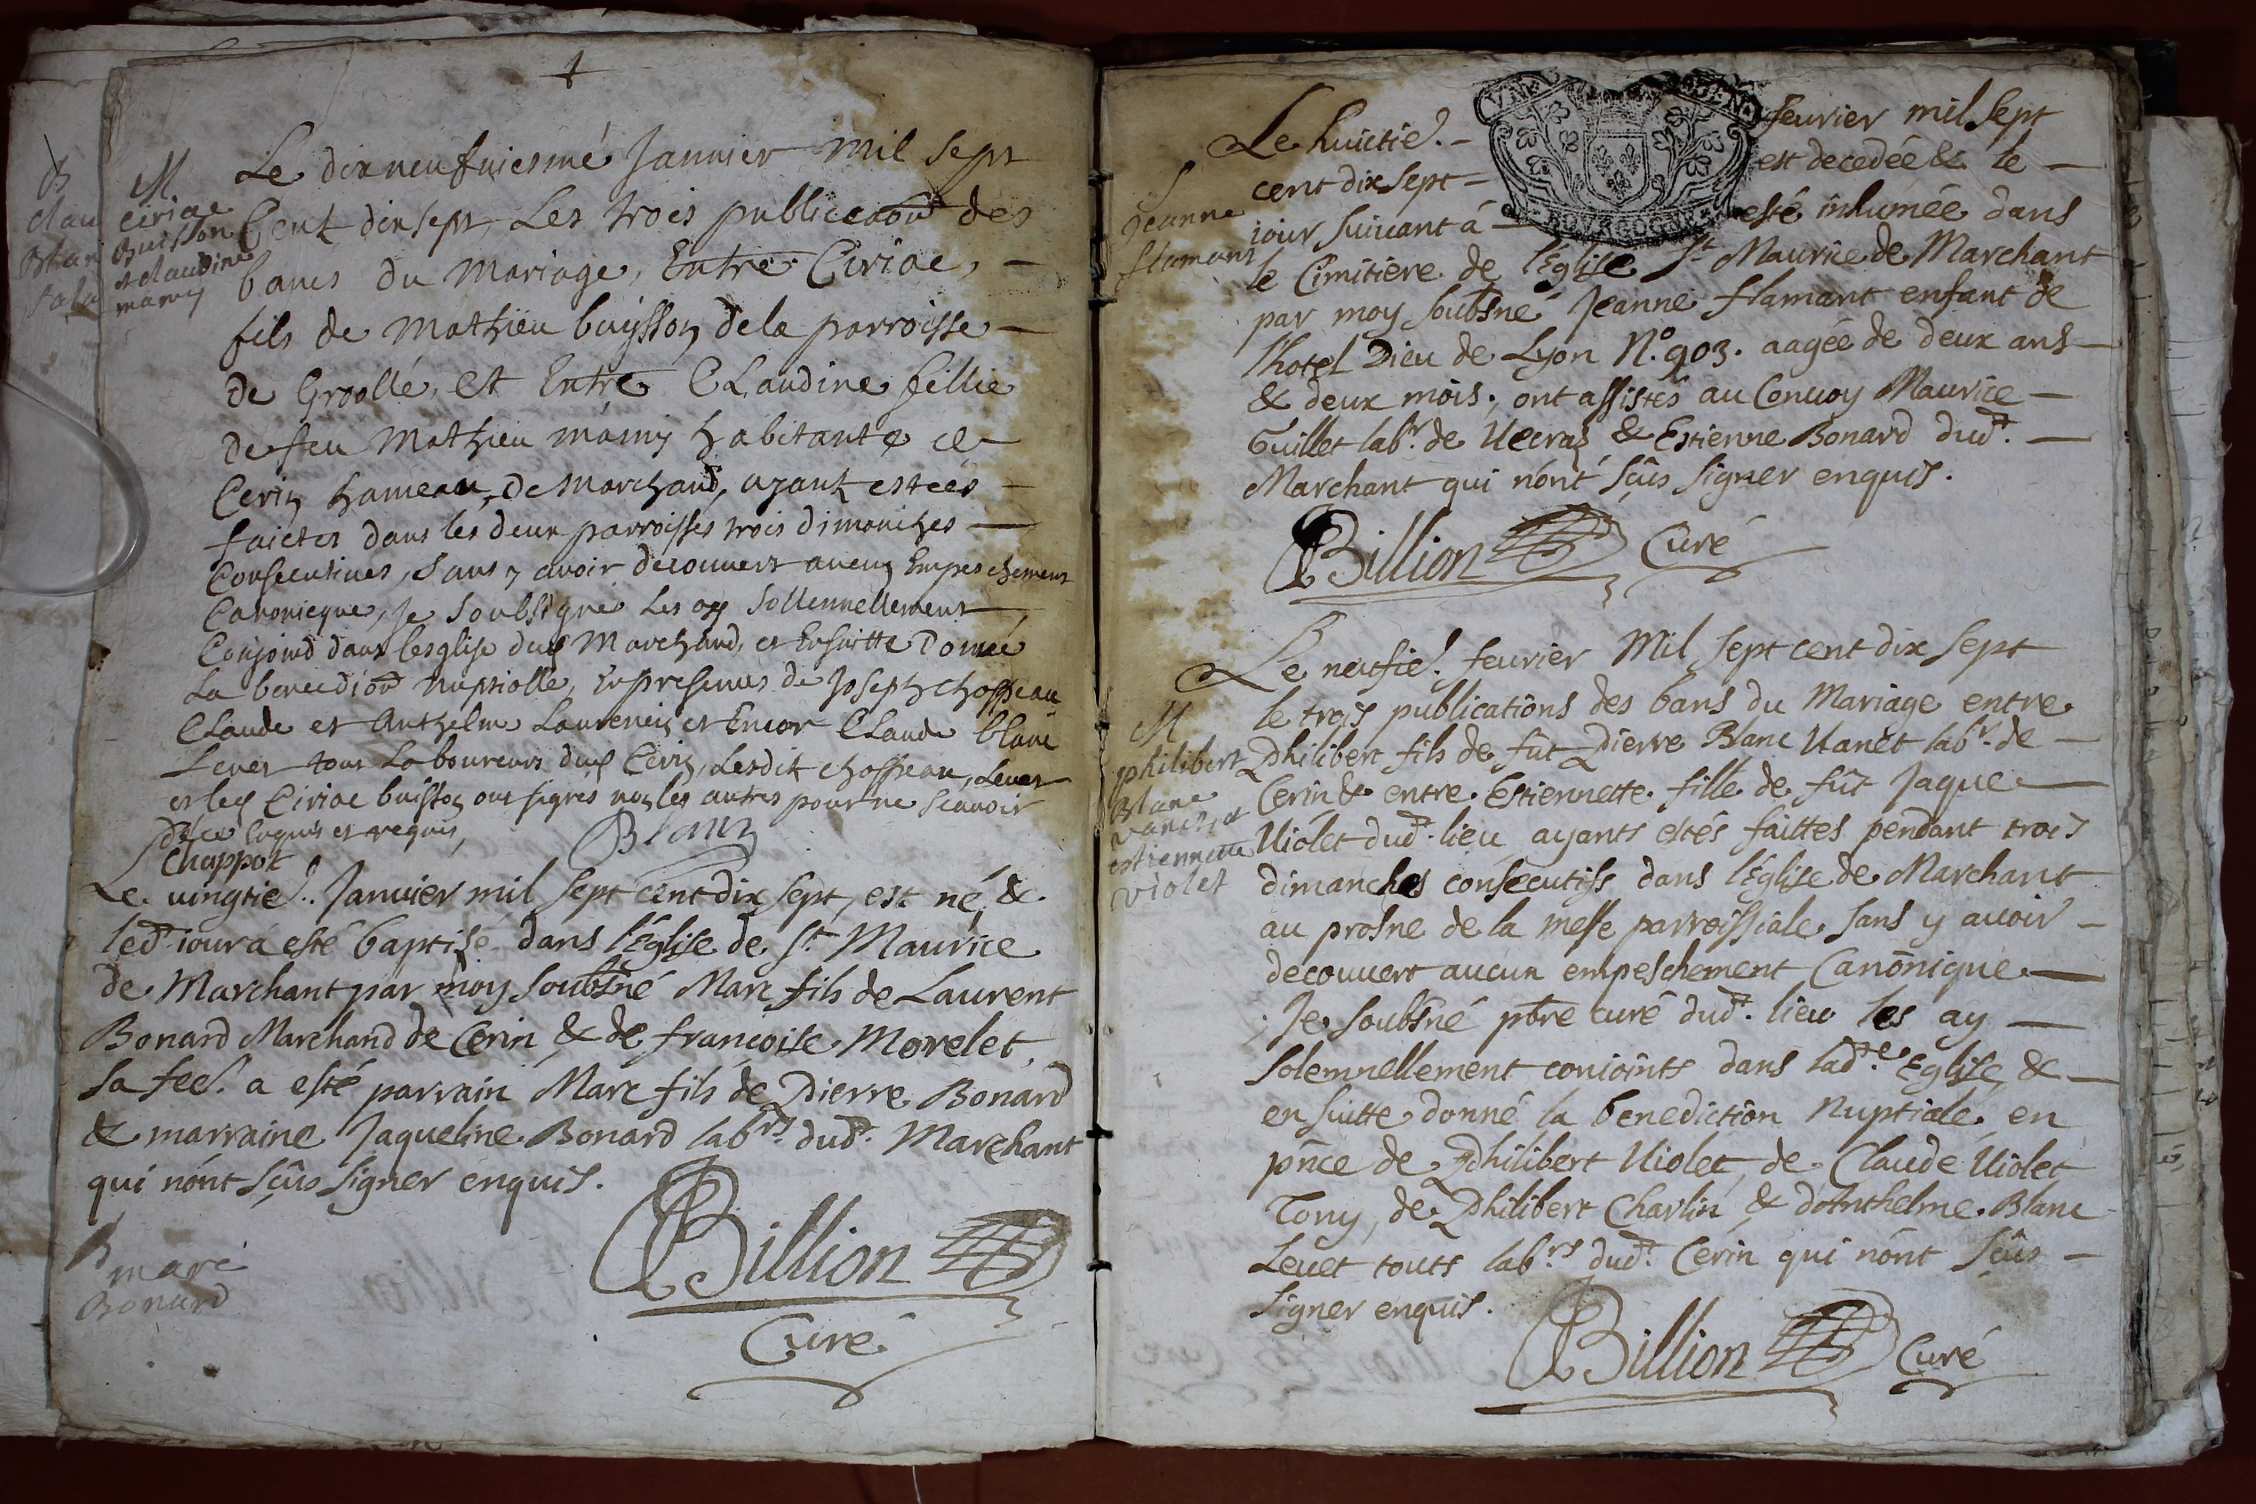 Le dixneufuiesme Januier mil sept
Cent dixsept, Les trois publicãõns des
bancs du Mariage, Entre Ciriac, —
fils de Mathieu buysson de la parroisse —
de Groslé, et Entre CLaudine fillie
de feu Mathieu mamy habitante
Cerin hameau, de Marchand, ayant estées —
faictes dans les deux parroisses trois dimanches —
Consecutiues, Sans y auoir decouuert aucun Empeschement
Canonicque, Je Soubsigné Les ay Sollennellement
Conjoind dans lesglise dud Marchand, et Ensuitte Donné
La benediõn Nuptialle, En presences de Joseph choffeau
CLaude et Anthelme Laurencin et Encor CLaude blanc
Leuet tous Laboureurs dud Cerin, Lesdit choffeau, Leuet
et led Ciriac buisson ont signés non les autres pour ne Scauoir
de ce Enquis et requis,
Chappot
Blanc
M
Ciriac
Buisson
et claudine
mamy
B
Le vingtie. Januier mil Sept cent dix sept, est né &
led. iour á esté baptisé dans l'Eglise de St Maurice
de Marchant par moy Soubsné Marc fils de Laurent
Bonard Marchand de Cerin & de francoise Morelet
sa fee. a esté parrain Marc fils de Pierre Bonard
& marraine Jaqueline Bonard labrs. dud. Marchant
qui nónt sçûs signer enquis.
Billion
Curé
B
marc
Bonard
Le huictie. — feurier mil Sept
cent dix Sept — est decedée & le —
iour suiuant á — esté inhumée dans
le Cimitiere de l'Eglise St Maurice de Marchant
par moy Soubsné Jeanne flamant enfant de
l'hotel Dieu de Lyon N.º 903. aagée de deux ans —
& deux mois, ont assistés au Conuoy Maurice —
Guillet labr. de Uecras & Estienne Bonard dud. —
Marchant qui nónt sçûs signer enquis.
Billion Curé
BOURGOGNE
Jeanne
flamant
Le neufie. feurier Mil Sept cent dix Sept
le trois publications des bans du Mariage entre
Philibert fils de fût Pierre Blanc Uanet labr. de —
Cerin & entre Estiennette fille de fût Jaque —
Uiolet dud. lieu ayants estés faittes pendant trois
dimanches consecutifs dans l'Eglise de Marchant
au prosne de la messe parroissiale sans y auoir —
decouuert aucun empeschement Canônique —
Je soubsné pbre curé dud. lieu les ay —
Solemnellement conioints dans lad.e Eglise & —
en suitte donné la benediction Nuptiale en
pnce de Philibert Uiolet, de Claude Uiolet
Tony, de Philibert Charlin & d'Anthelme Blanc
Leuet touts labrs. dud. Cerin qui nónt sçûs —
signer enquis.
Billion Curé
M
philibert
Blanc
vanet et
estiennette
violet